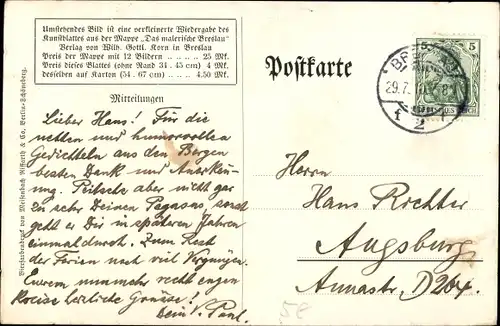 Umstehendes Bild ist eine verkleinerte Wiedergabe des
Kunstblattes aus der Mappe „Das malerische Breslau“
Verlag von Wilh. Gottl. Korn in Breslau
Preis der Mappe mit 12 Bildern .. .. 25 Mk.
Preis dieses Blattes (ohne Rand 31 . 45 cm) 4 Mk.
desselben auf Karton (54 . 67 cm) .. .. 4.50 Mk.
Postkarte
5 5
BRESLAU
29.7.
f 2 f
Mitteilungen
Lieber Hans! Für die
netten und humorvollen
Gedichtlein aus den Bergen
besten Dank und Anerken-
nung. Peitsche aber nicht gar
zu sehr Deinen Pegasus, sonst
geht er Dir in späteren Jahren
einmal durch. Zum Rest
der Ferien noch viel Vergnügen.
Eurem nunmehr recht engen
Kreise herzliche Grüsse!
Dein V. Paul.
Herrn
Hans Rochter
Augsburg
Annastr. D 264.
Vierfarbendruck von Meisenbach Riffarth & Co. Berlin-Schöneberg.